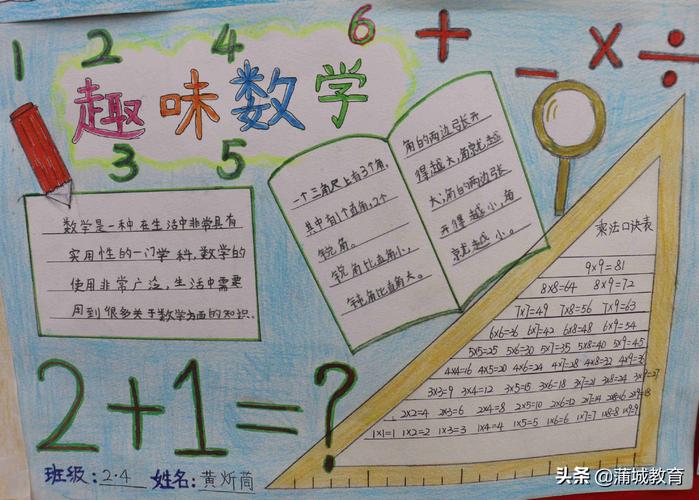 1 2 4 6 + - × ÷
趣味数学
3 5
数学是一种在生活中非常具有
实用性的一门学科，数学的
使用非常广泛，生活中需要
用到很多关于数学方面的知识。
一个三角尺上有3个角，
其中有1个直角，2个
锐角。
锐角比直角小，
钝角比直角大。
角的两边张开
得越大，角就越
大；角的两边张
开得越小，角
就越小。
乘法口诀表
9×9=81
8×8=64 8×9=72
7×7=49 7×8=56 7×9=63
6×6=36 6×7=42 6×8=48 6×9=54
5×5=25 5×6=30 5×7=35 5×8=40 5×9=45
4×4=16 4×5=20 4×6=24 4×7=28 4×8=32 4×9=36
3×3=9 3×4=12 3×5=15 3×6=18 3×7=21 3×8=24 3×9=27
2×2=4 2×3=6 2×4=8 2×5=10 2×6=12 2×7=14 2×8=16 2×9=18
1×1=1 1×2=2 1×3=3 1×4=4 1×5=5 1×6=6 1×7=7 1×8=8 1×9=9
2+1=?
班级：2.4 姓名：黄炘茼
头条 @蒲城教育